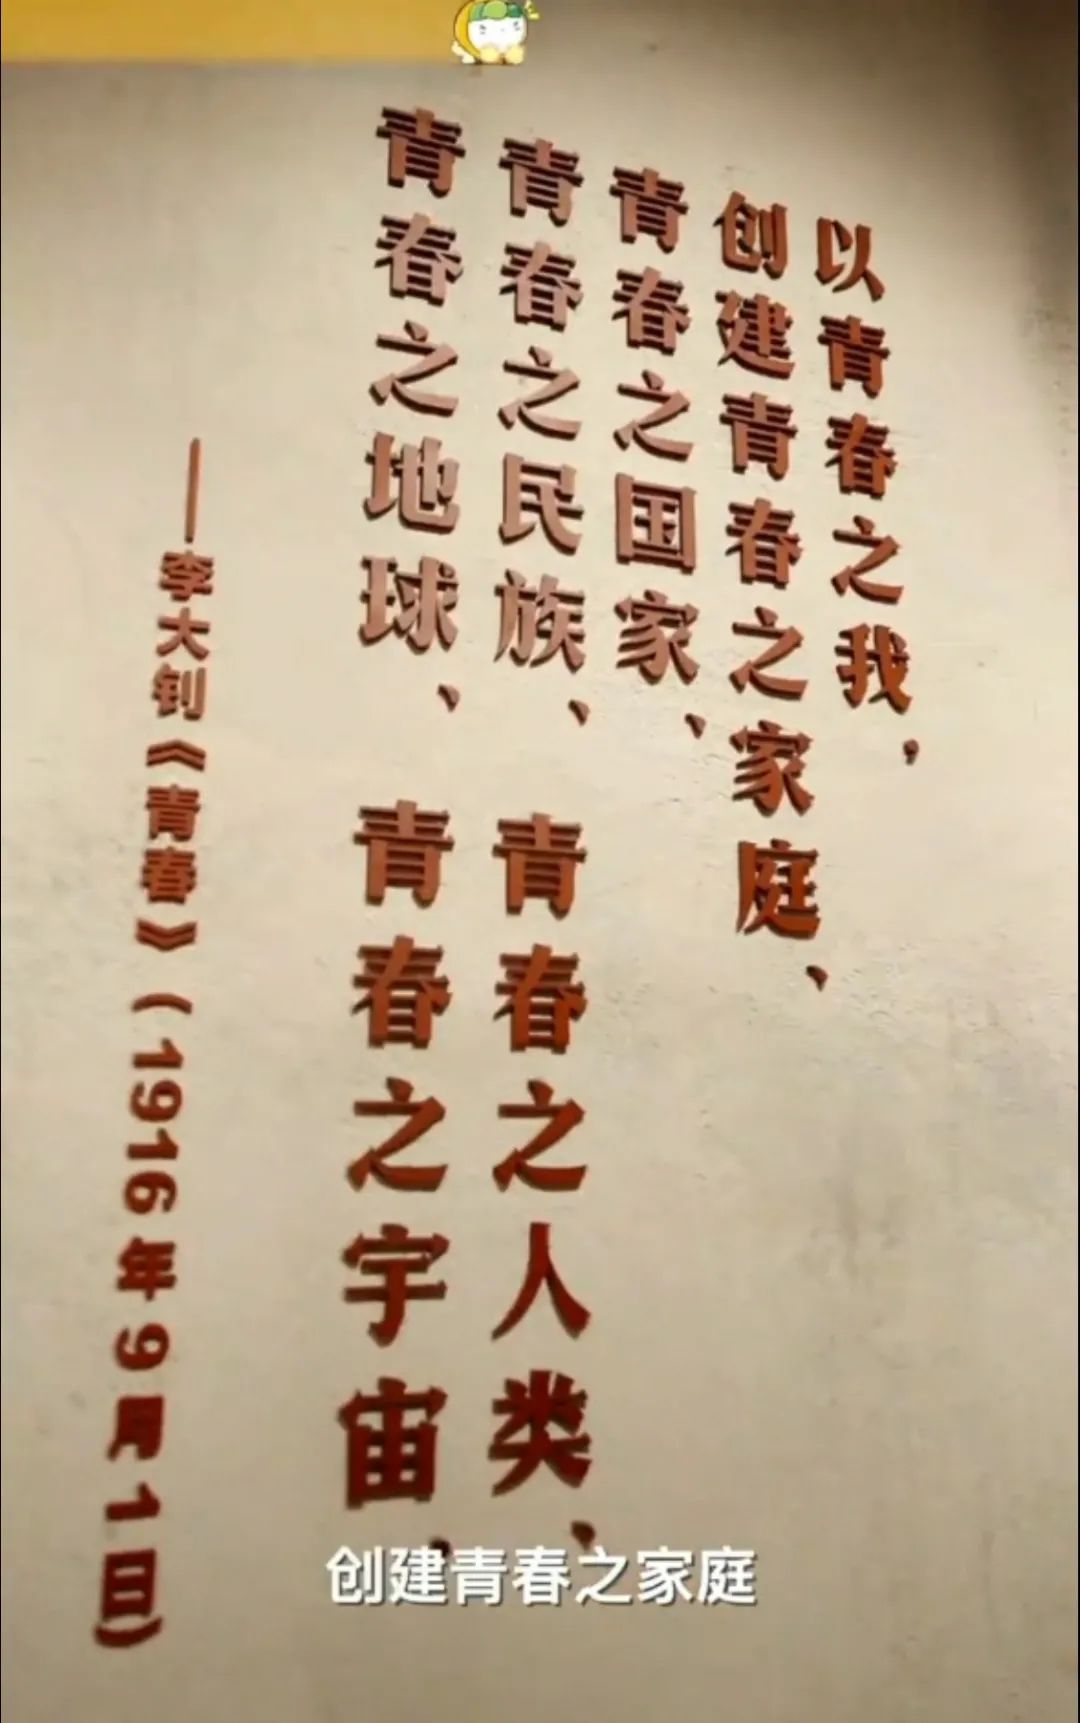 以青春之我，
创建青春之家庭、
青春之国家、
青春之民族、青春之人类、
青春之地球、青春之宇宙，
——李大钊《青春》（1916年9月1日）
创建青春之家庭